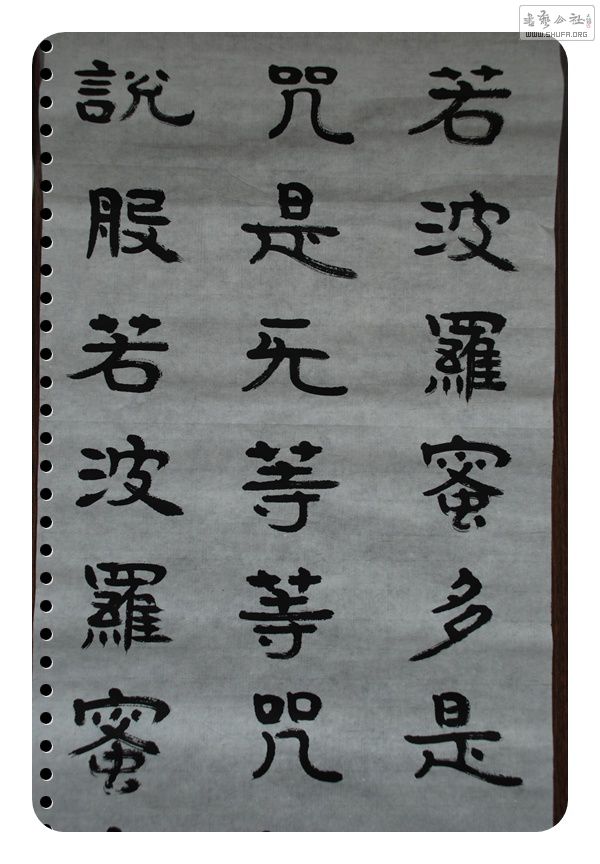 若波羅蜜多是
咒是无等等咒
說般若波羅蜜
WWW.SHUFA.ORG